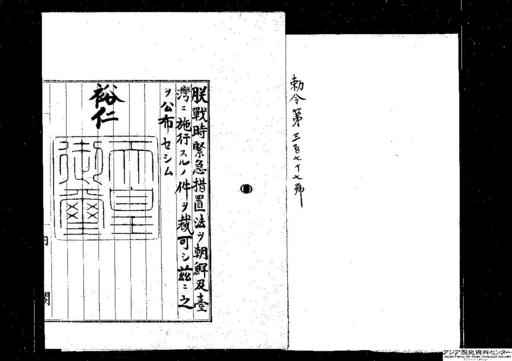 勅令第三百七十七號
朕戰時緊急措置法ヲ朝鮮及臺
灣ニ施行スルノ件ヲ裁可シ茲ニ之
ヲ公布セシム
裕仁
天皇
御璽
内閣
アジア歴史資料センター